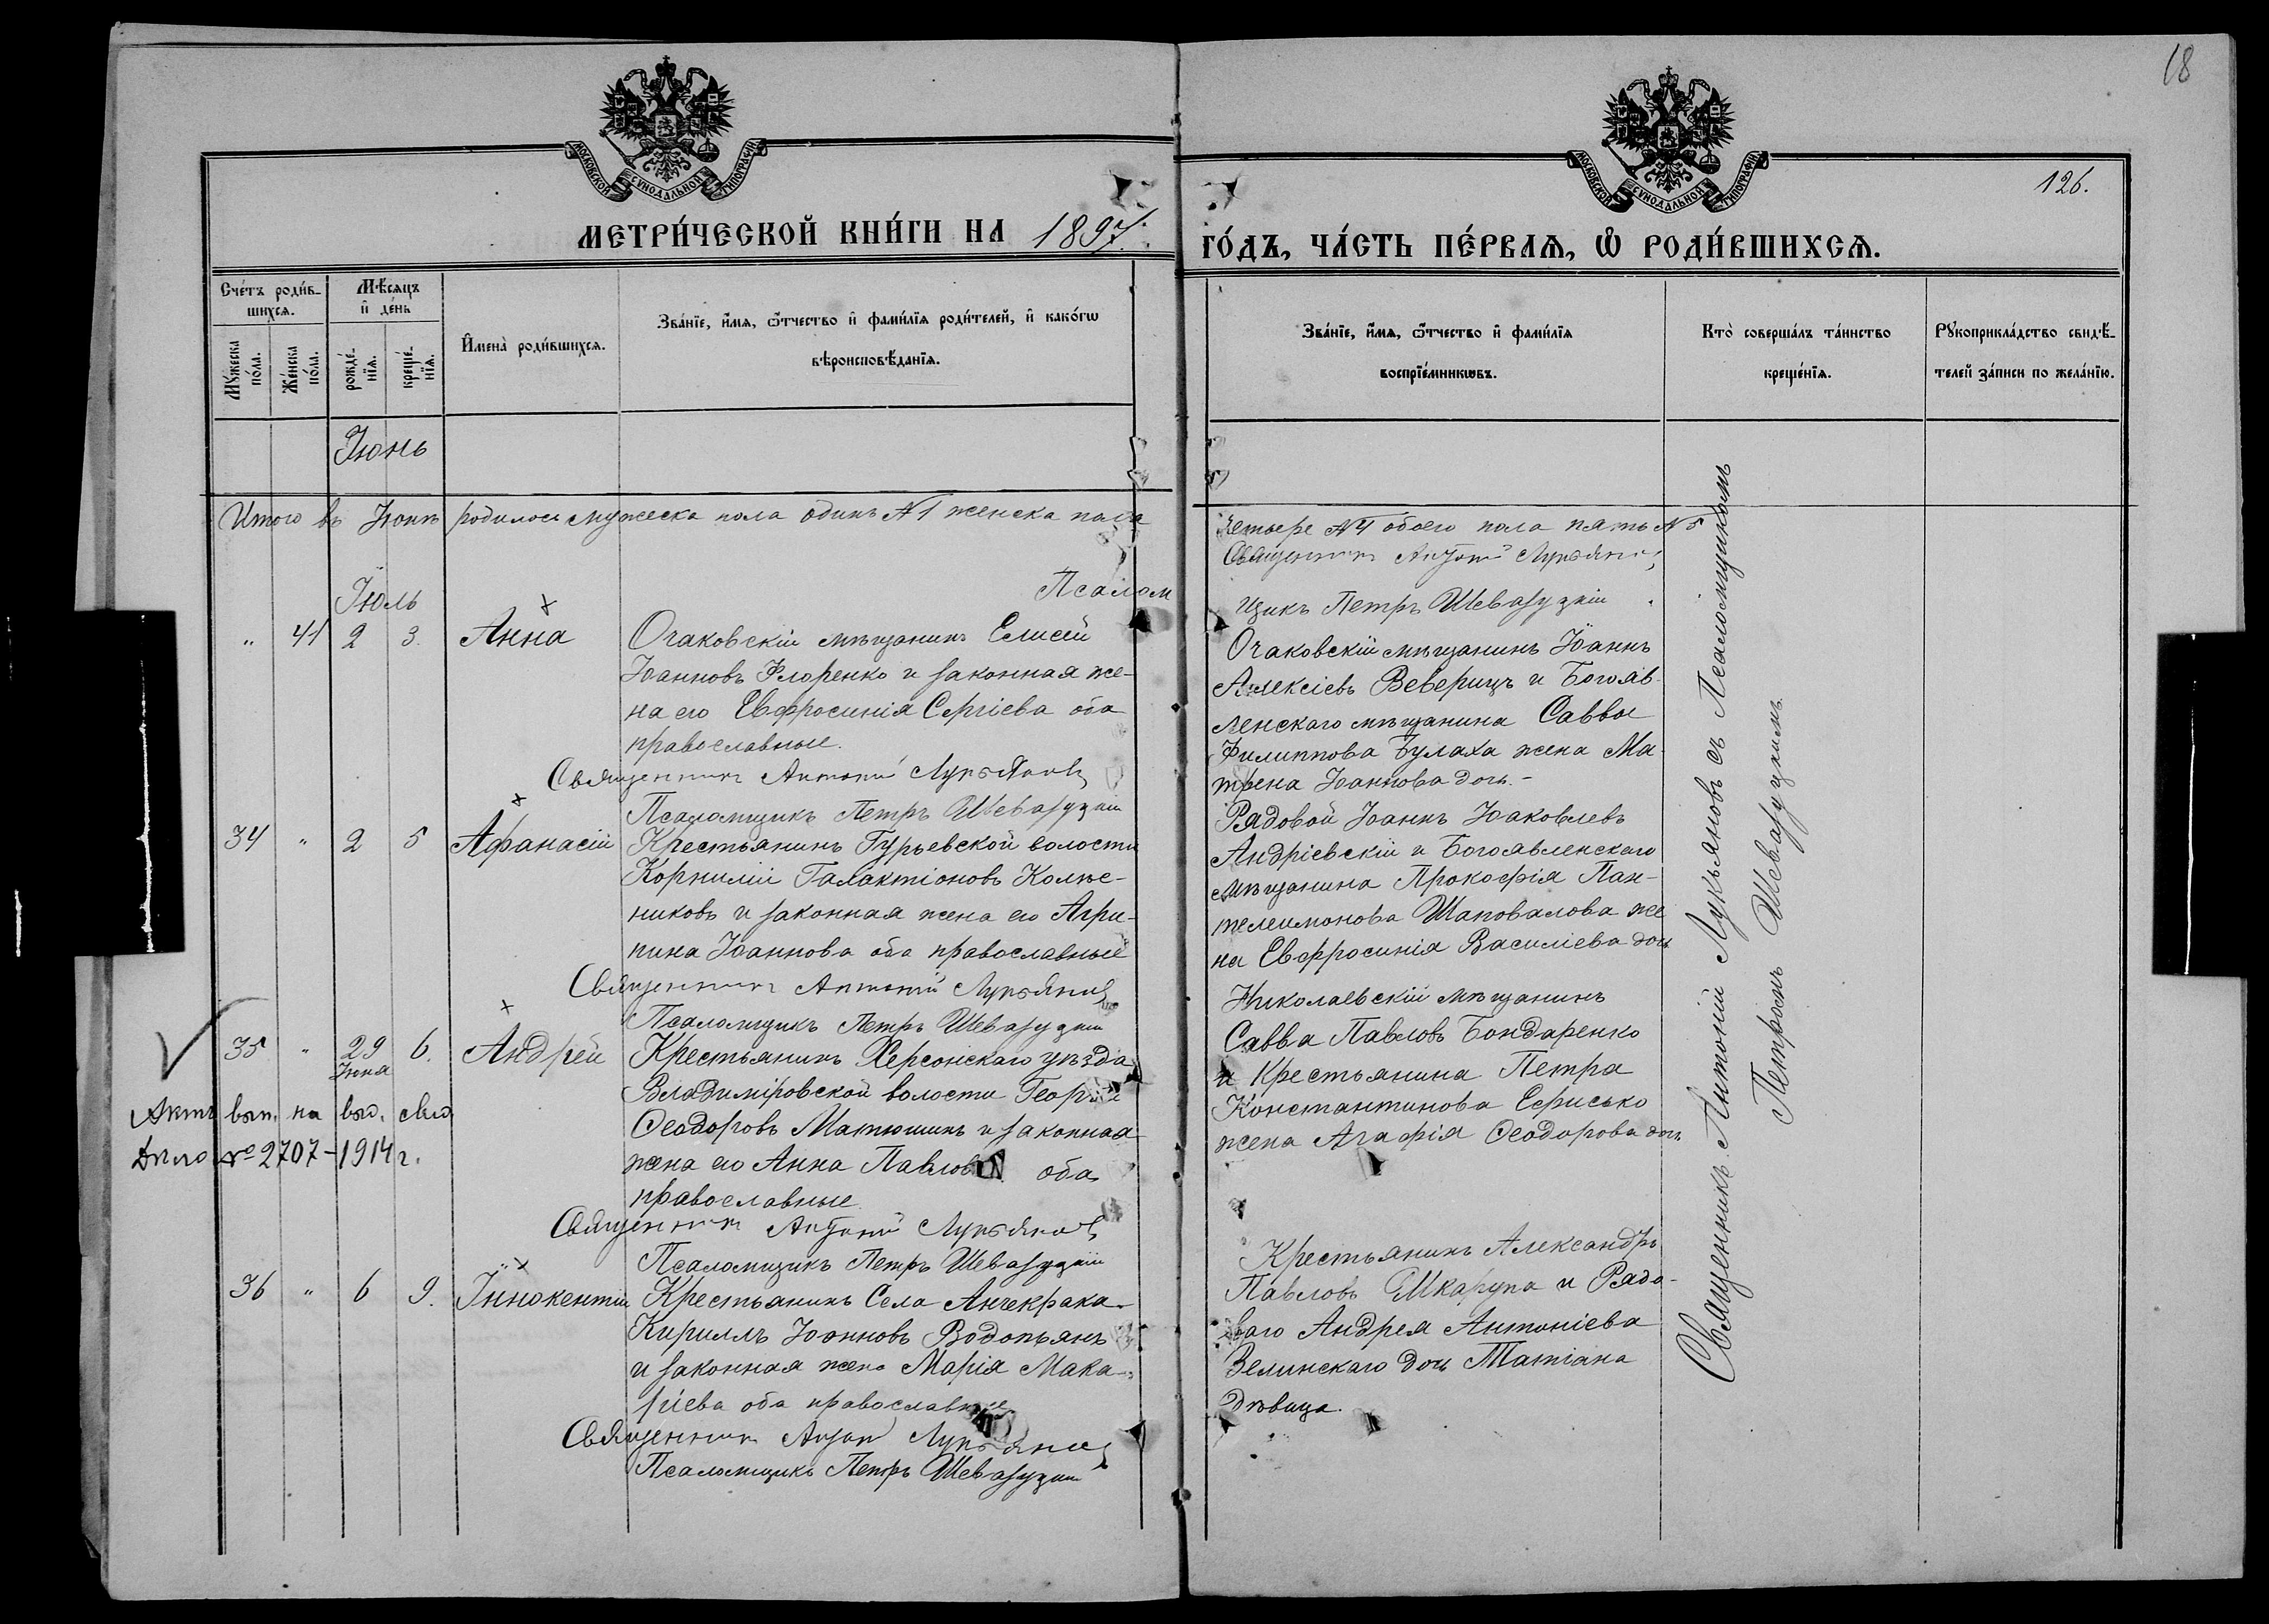 18
126.
МОСКОВСКОЙ СѴНОДАЛЬНОЙ ТИПОГРАФІИ
МОСКОВСКОЙ СѴНОДАЛЬНОЙ ТИПОГРАФІИ
МЕТРИ́ЧЕСКОЙ КНИ́ГИ НА 1897.
ГО́ДЪ, ЧА́СТЬ ПЕ́РВАЯ, Ѽ РОДИ́ВШИХСЯ.
Сче́тъ роди́в-
шихся.
Му́жеска по́ла.
Же́нска по́ла.
Мѣ́сяцъ
и҆ де́нь
рожде́-
нїя.
креще́-
нїя.
И҆мена̀ роди́вшихся.
Зва́нїе, и҆́мя, ѻ҆́тчество и҆ фами́лїя роди́телей, и҆ како́гѡ
вѣроисповѣ́данїя.
Зва́нїе, и҆́мя, ѻ҆́тчество и҆ фами́лїя
воспрїе́мникѡвъ.
Кто̀ соверша́лъ та́инство
креще́нїя.
Рꙋкоприкла́дство свидѣ́-
телей за́писи по жела́нїю.
Іюнь
Итого въ Іюнѣ родилось мужеска пола одинъ №1 женска пола
четыре №4 обоего пола пять №5
Священникъ Антоній Лукьяновъ
Псалом
щикъ Петръ Шевазуцкій
Іюль
" 41 2 3. Анна
Очаковскій мѣщанинъ Елисей
Іоанновъ Флоренко и законная же-
на его Евфросинія Сергіева оба
православные.
Священникъ Антоній Лукьяновъ
Псаломщикъ Петръ Шевазуцкій
Очаковскій мѣщанинъ Іоаннъ
Алексіевъ Веверицъ и Богояв
ленскаго мѣщанина Саввы
Филиппова Булаха жена Ма-
трена Іоаннова дочь.-
34 " 2 5 Афанасій
Крестьянинъ Гурьевской волости
Корнилій Галактіоновъ Колѣс-
никовъ и законная жена его Агри-
пина Іоаннова оба православные
Священникъ Антоній Лукьяновъ
Псаломщикъ Петръ Шевазуцкій
Рядовой Іоаннъ Іаковлевъ
Андріевскій и Богоявленскаго
мѣщанина Прокофія Пан-
телеимонова Шаповалова же
на Евфросинія Василіева дочь
35 " 29 Іюня 6. Андрей
Крестьянинъ Херсонскаго уѣзда
Владиміровской волости Георгій
Ѳеодоровъ Матюшинъ и законная
жена его Анна Павлова оба
православные.
Священникъ Антоній Лукьяновъ
Псаломщикъ Петръ Шевазуцкій
Николаевскій мѣщанинъ
Савва Павловъ Бондаренко
и Крестьянина Петра
Константинова Есрисько
жена Агафія Ѳеодорова дочь
Актъ вып. на выд. свид.
Дѣло № 2707-1914 г.
36 " 6 9. Іннокентій
Крестьянинъ Села Анчекрака
Кириллъ Іоанновъ Водопьянъ
и законная жена Марія Мака-
ріева оба православные.
Священникъ Антоній Лукьяновъ
Псаломщикъ Петръ Шевазуцкій
Крестьянинъ Александръ
Павловъ Шкарупа и Рядо-
ваго Андрея Антоніева
Зелинскаго дочь Татіана
дѣвица.
Священникъ Антоній Лукьяновъ съ Псаломщикомъ
Петромъ Шевазуцкимъ